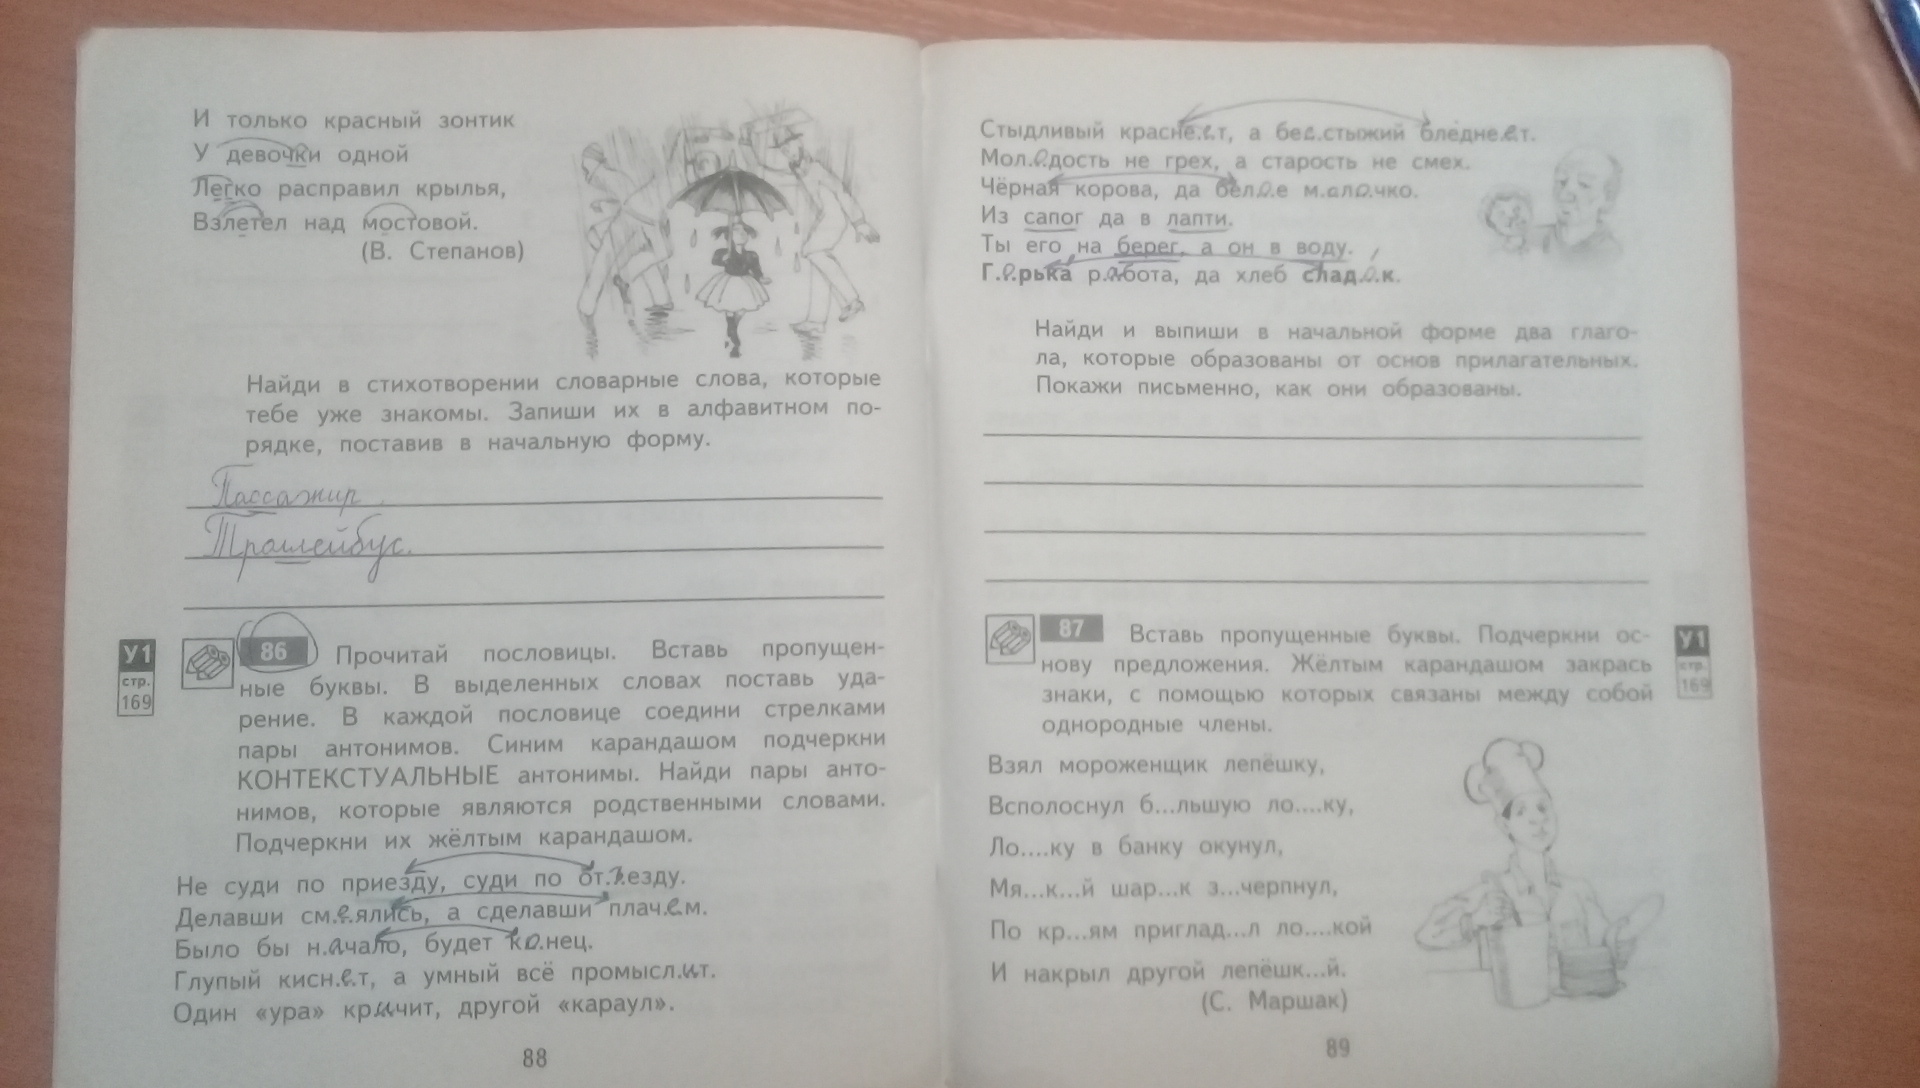 И только красный зонтик
У девочки одной
Легко расправил крылья,
Взлетел над мостовой.
(В. Степанов)
Найди в стихотворении словарные слова, которые
тебе уже знакомы. Запиши их в алфавитном по-
рядке, поставив в начальную форму.
Пассажир.
Троллейбус.
У1
стр.
169
86 Прочитай пословицы. Вставь пропущен-
ные буквы. В выделенных словах поставь уда-
рение. В каждой пословице соедини стрелками
пары антонимов. Синим карандашом подчеркни
КОНТЕКСТУАЛЬНЫЕ антонимы. Найди пары анто-
нимов, которые являются родственными словами.
Подчеркни их жёлтым карандашом.
Не суди по приезду, суди по от.ъ.езду.
Делавши см.е.ялись, а сделавши плач.е.м.
Было бы н.а.чало, будет к.о.нец.
Глупый кисн.е.т, а умный всё промысл.и.т.
Один «ура» кр.и.чит, другой «караул».
88
Стыдливый красне.е.т, а бес.стыжий бледне.е.т.
Мол.о.дость не грех, а старость не смех.
Чёрная корова, да бел.о.е м.а.л.о.чко.
Из сапог да в лапти.
Ты его на берег, а он в воду.
Г.о.рька р.а.бота, да хлеб слад.о.к.
Найди и выпиши в начальной форме два глаго-
ла, которые образованы от основ прилагательных.
Покажи письменно, как они образованы.
87 Вставь пропущенные буквы. Подчеркни ос-
нову предложения. Жёлтым карандашом закрась
знаки, с помощью которых связаны между собой
однородные члены.
У1
стр.
169
Взял мороженщик лепёшку,
Всполоснул б...льшую ло....ку,
Ло....ку в банку окунул,
Мя...к...й шар...к з...черпнул,
По кр...ям приглад...л ло....кой
И накрыл другой лепёшк...й.
(С. Маршак)
89